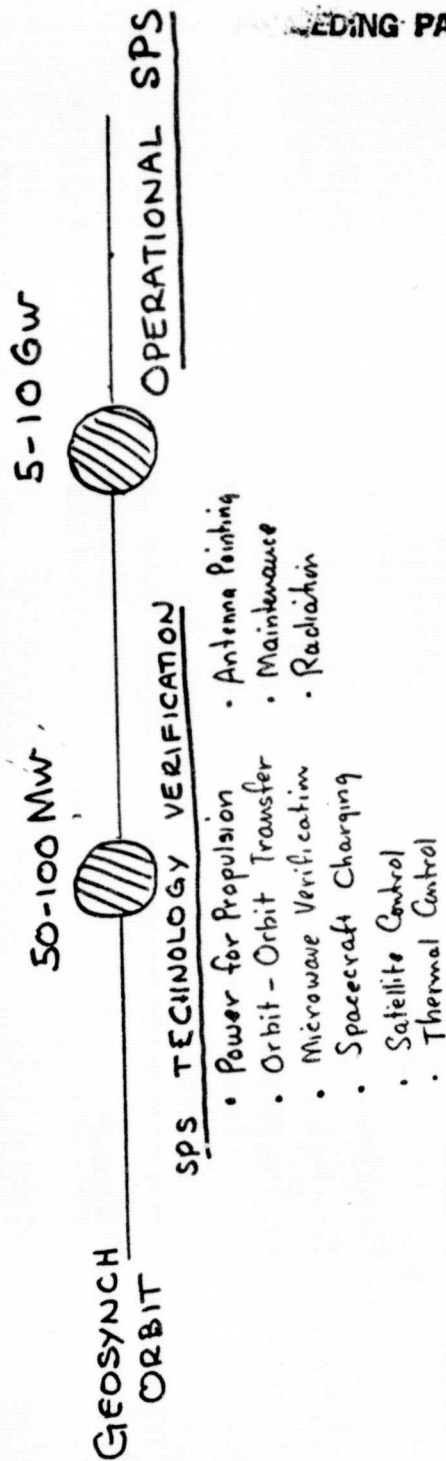 EDING PA
GEOSYNCH
ORBIT
50-100 MW
5-10 GW
SPS TECHNOLOGY VERIFICATION
• Power for Propulsion
• Orbit-Orbit Transfer
• Microwave Verification
• Spacecraft Charging
• Satellite Control
• Thermal Control
• Antenna Pointing
• Maintenance
• Radiation
OPERATIONAL SPS